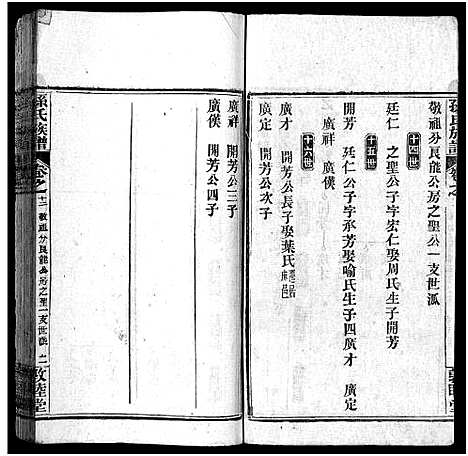 孫氏族譜
敬祖分良能公房之聖公一支世派
十四世
廷仁 之聖公子字宏仁娶周氏生子開芳
十五世
開芳 廷仁公子字承芳娶喻氏生子四廣才 廣定
廣祥 廣僕
十六世
廣才 開芳公長子娶葉氏
廣定 開芳公次子
廣祥 開芳公三子
廣僕 開芳公四子
孫氏族譜
卷之十二 敬祖分良能公房之聖一支世派
敦睦堂